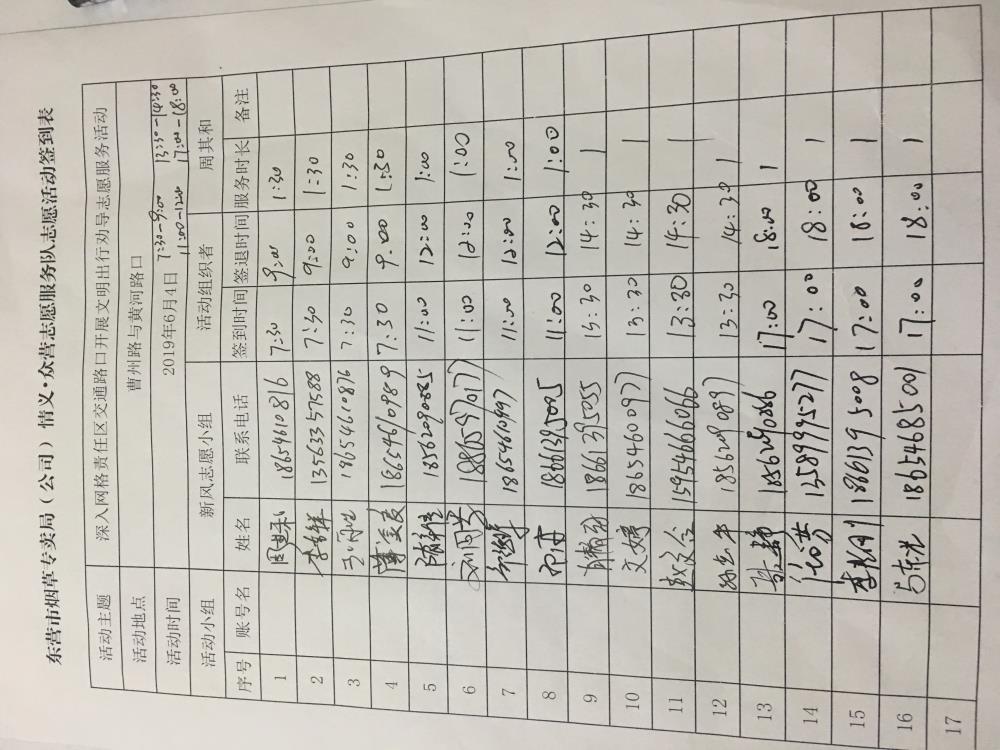 东营市烟草专卖局（公司）情义·众营志愿服务队志愿活动签到表
活动主题 深入网格责任区交通路口开展文明出行劝导志愿服务活动
活动地点 曹州路与黄河路口
活动时间 2019年6月4日 7:30-9:00 13:30-14:30
11:00-12:00 17:00-18:00
活动小组 新风志愿小组 活动组织者 周其和
序号 账号名 姓名 联系电话 签到时间 签退时间 服务时长 备注
1 18654610816 7:30 9:00 1:30
2 13563357588 7:30 9:00 1:30
3 18654610876 7:30 9:00 1:30
4 18654610989 7:30 9:00 1:30
5 18562090885 11:00 12:00 1:00
6 18805970177 11:00 12:00 1:00
7 18654610997 11:00 12:00 1:00
8 18661395005 11:00 12:00 1:00
9 18661395055 13:30 14:30 1
10 文婷 18654600977 13:30 14:30 1
11 15954666066 13:30 14:30 1
12 18562090897 13:30 14:30 1
13 18562090866 17:00 18:00 1
14 13589995277 17:00 18:00 1
15 18661395008 17:00 18:00 1
16 18654685001 17:00 18:00 1
17